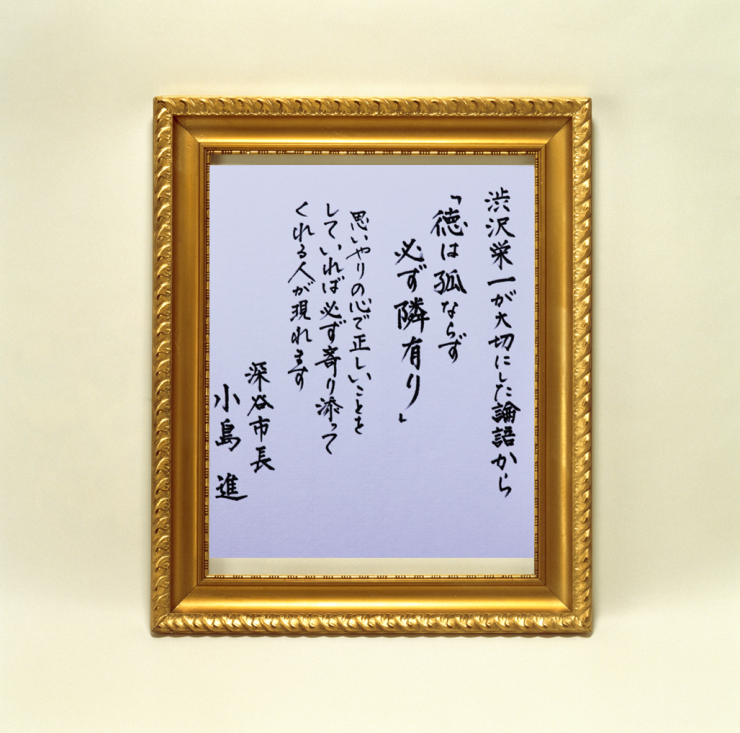 渋沢栄一が大切にした論語から
「徳は孤ならず
必ず隣有り」
思いやりの心で正しいことを
していれば必ず寄り添って
くれる人が現れます
深谷市長
小島進